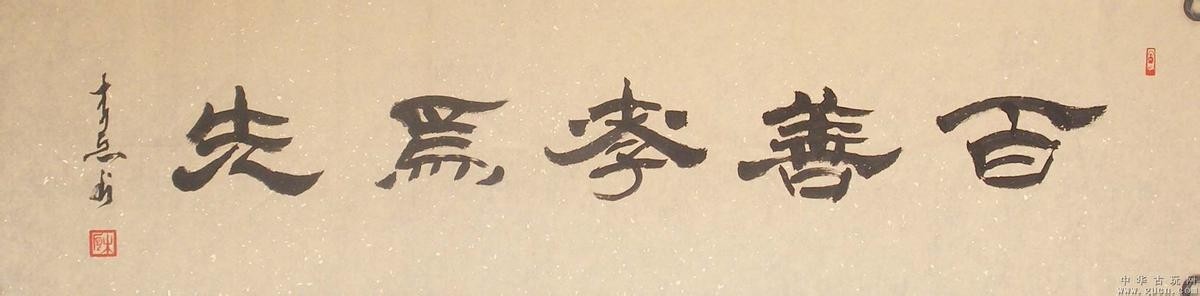 百善孝為先
中华古玩网
www.gucn.com